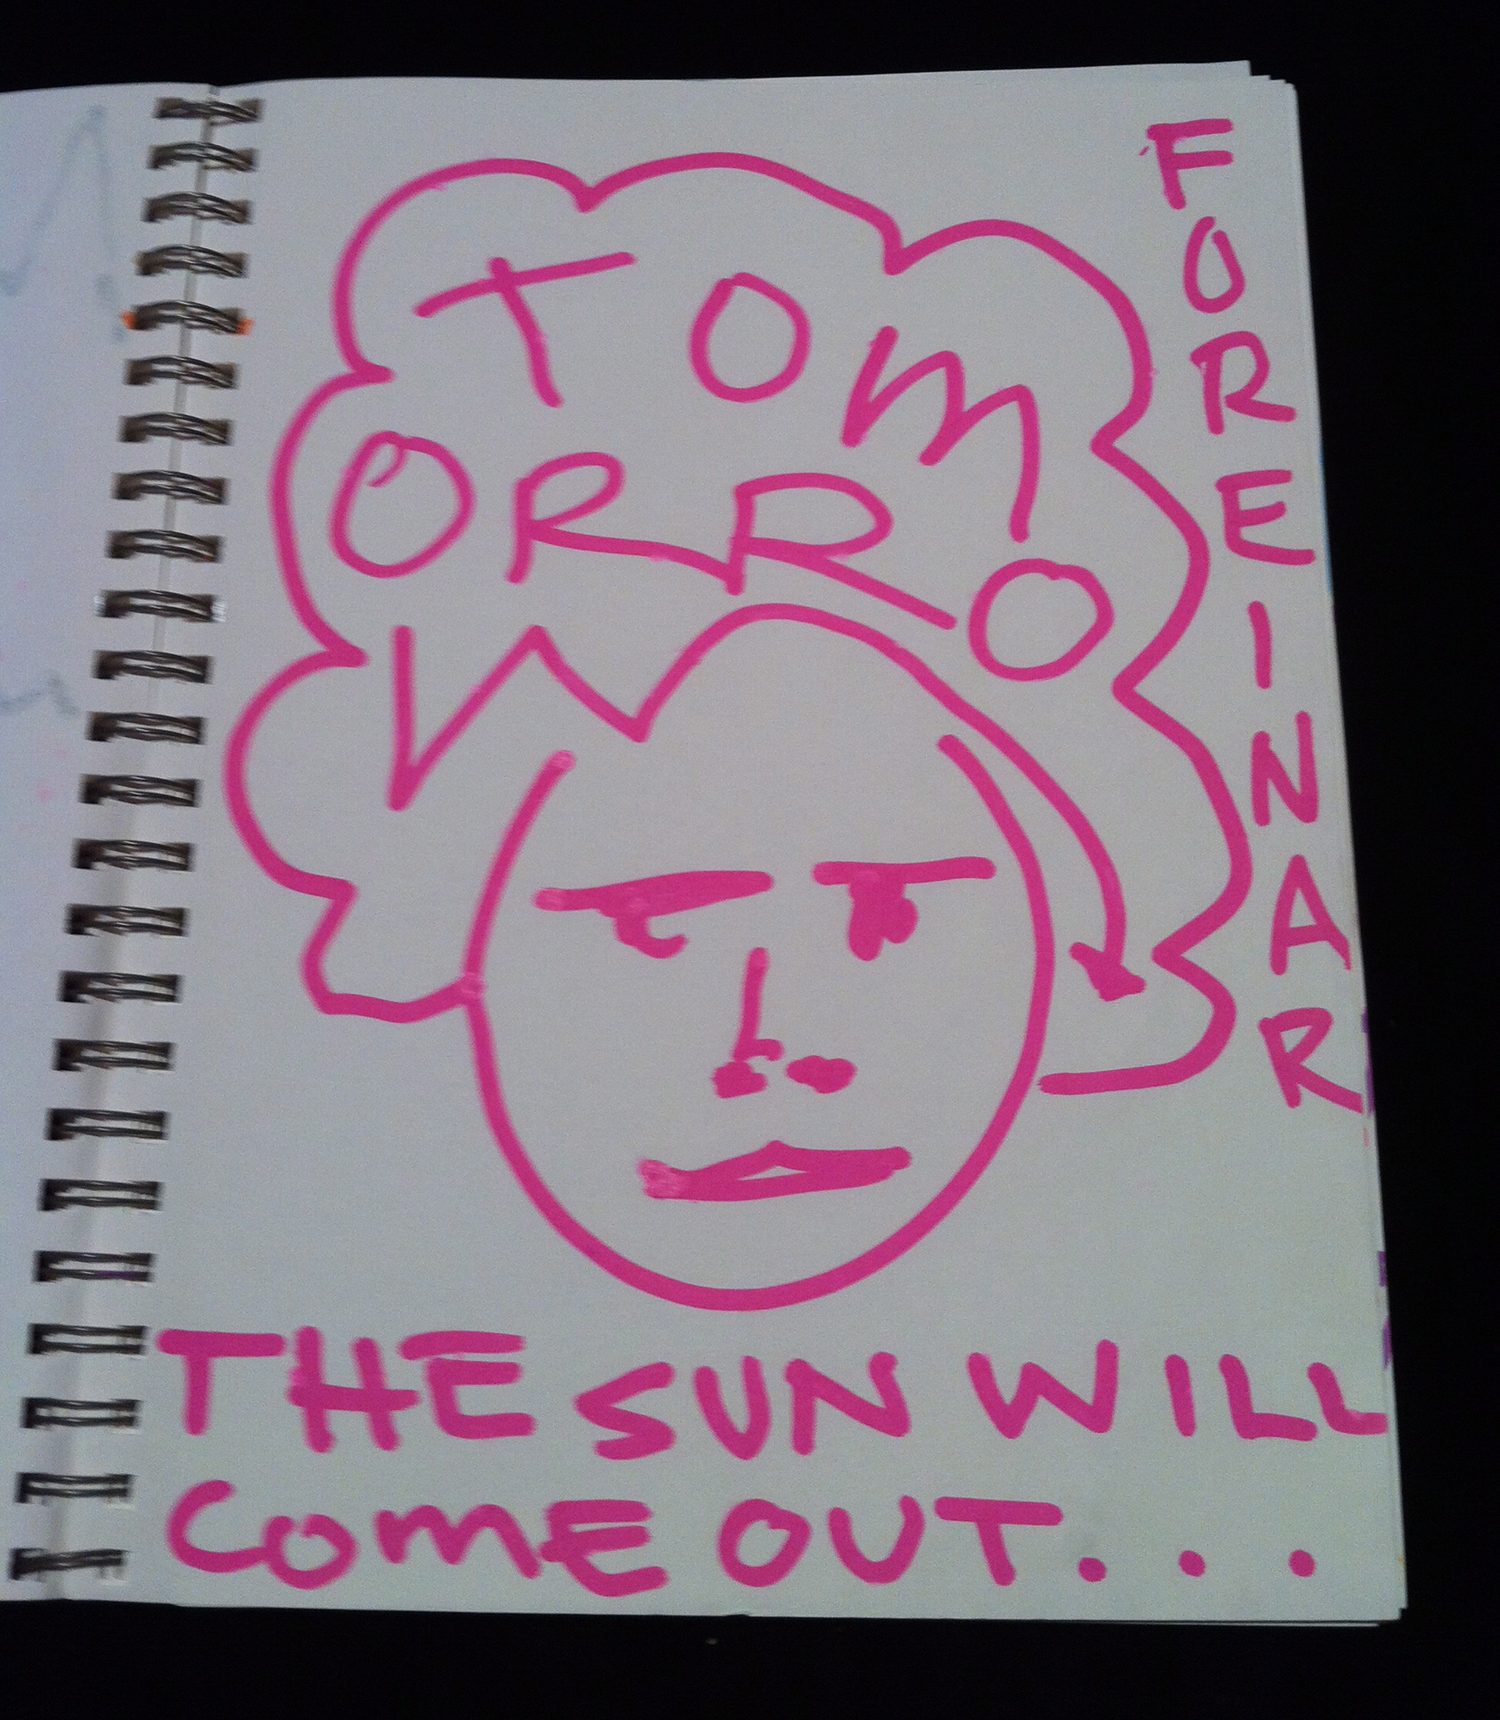 TOM
ORRO
W
THE SUN WILL
COME OUT...
FOREINAR